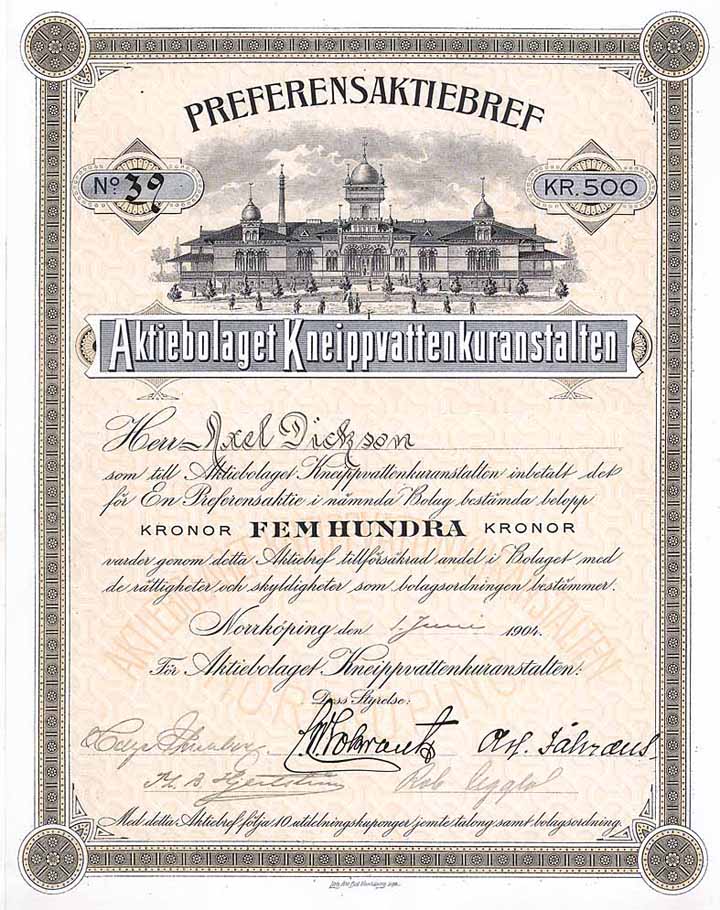 PREFERENSAKTIEBREF
No. 39 KR. 500
Aktiebolaget Kneippvattenkuranstalten
Herr Axel Dickson
som till Aktiebolaget Kneippvattenkuranstalten inbetalt det
för En Preferensaktie i nämnda Bolag bestämda belopp
KRONOR FEM HUNDRA KRONOR
varder genom detta Aktiebref tillförsäkrad andel i Bolaget med
de rättigheter och skyldigheter som bolagsordningen bestämmer.
Norrköping den 1 Juni 1904.
För Aktiebolaget Kneippvattenkuranstalten:
Dess Styrelse:
Med detta Aktiebref följa 10 utdelningskuponger jemte talong samt bolagsordning.